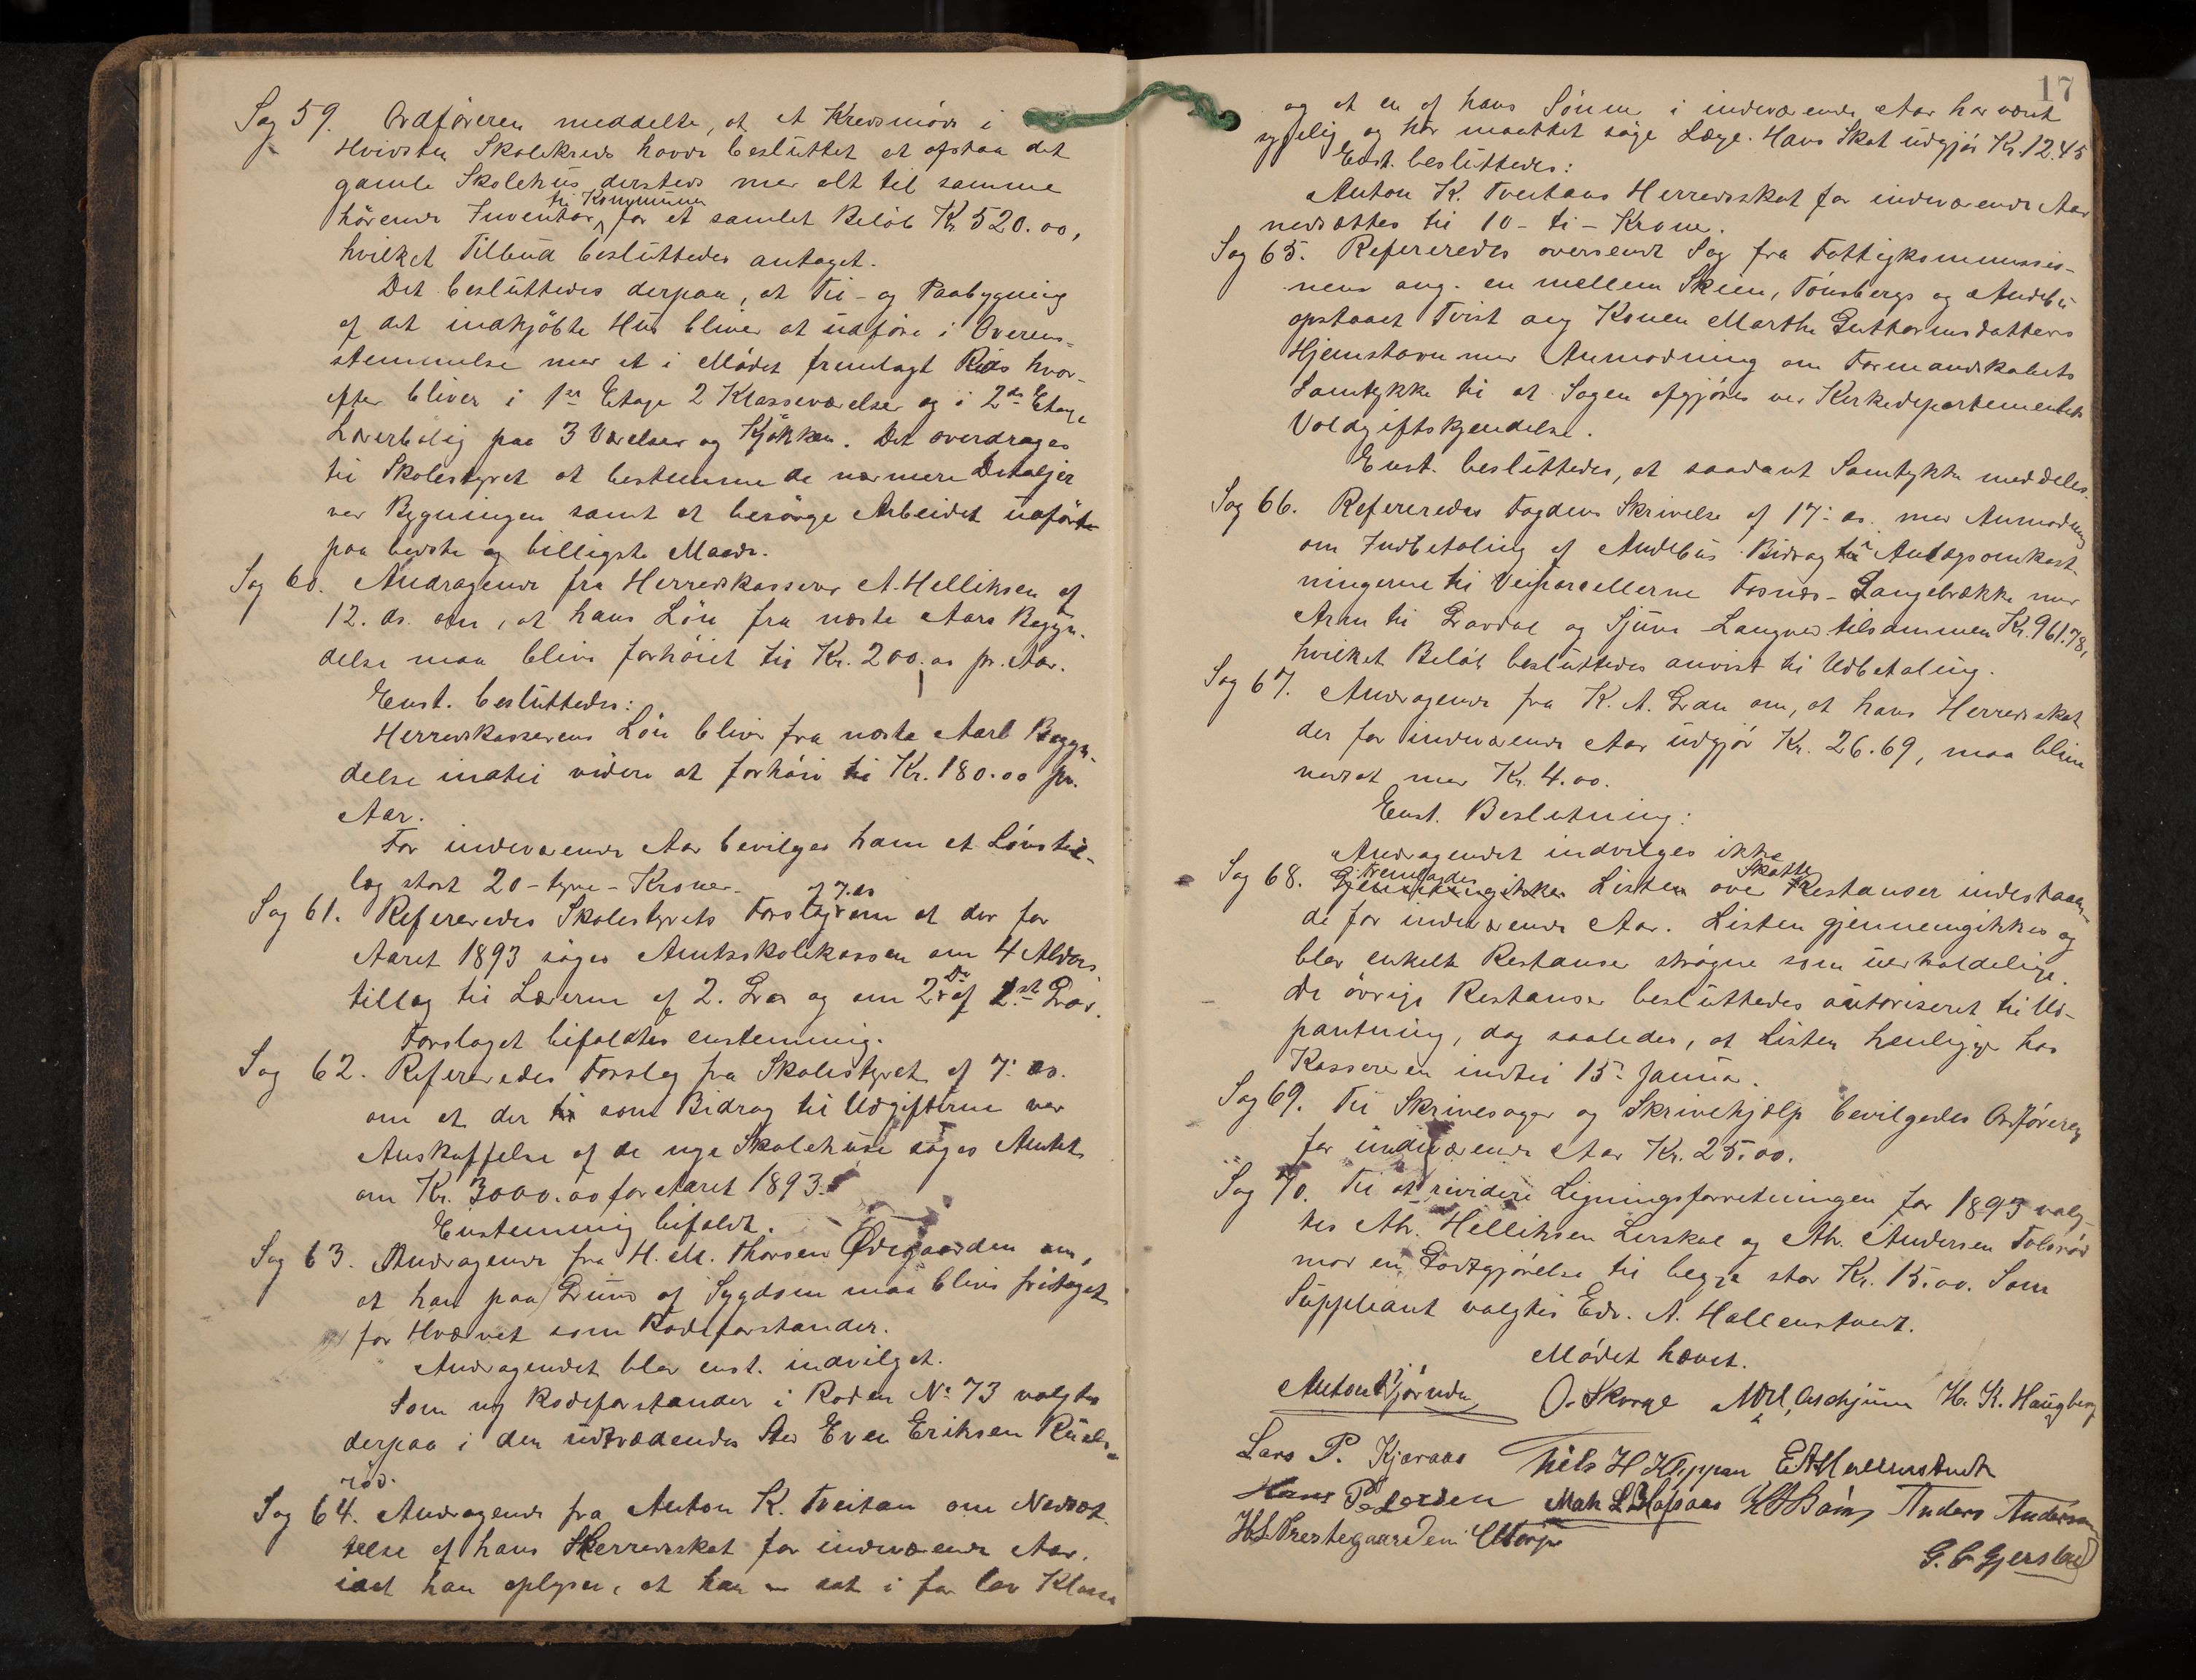 Sag 59. Ordføreren meddelte, at et Kredsmøde i
Hvidsten Skolekreds havde besluttet at afstaa det
gamle Skolehus dersteds med alt til samme
hørende Inventar til Kommunen for et samlet Beløb Kr 520.00,
hvilket Tilbud besluttedes antaget.
Det besluttedes derpaa, at Til- og Paabygning
af det indkjøbte Hus bliver at udføre i Overens-
stemmelse med et i Mødet fremlagt Rids hvor-
efter bliver i 1ste Etage 2 Klasseværelser og i 2den Etage
Lærerbolig paa 3 Værelser og Kjøkken. Det overdrages
til Skolestyret at bestemme de nærmere Detaljer
ved Bygningen samt at besørge Arbeidet udført
paa bedste og billigste Maade.
Sag 60. Andragende fra Herredskasserer A. Helliksen af
12. ds. om, at hans Løn fra næste Aars Begyn-
delse maa blive forhøiet til Kr. 200.00 pr. Aar.
Enst. besluttedes:
Herredskassererens Løn bliver fra næste Aars Begyn-
delse indtil videre at forhøie til Kr. 180.00 pr.
Aar.
For indeværende Aar bevilges ham et Lønstil-
læg stort 20 - tyve - Kroner.
Sag 61. Refereredes Skolestyrets Forslag af 7. ds om at der for
Aaret 1893 søges Amtsskolekassen om 4 Alders-
tillæg til Lærerne af 2. Grad og om 2 do af 1st Grad.
Forslaget bifaldtes enstemmig.
Sag 62. Refereredes Forslag fra Skolestyret af 7. ds.
om at der som Bidrag til Udgifterne ved
Anskaffelse af de nye Skolehuse søges Amtet
om Kr. 3000.00 for Aaret 1893.
Enstemmig bifaldt.
Sag 63. Andragende fra H. M. Thorsen Ødegaarden om,
at han paa Grund af Sygdom maa blive fritaget
for Hvervet som Rodeforstander.
Andragendet blev enst. indvilget.
Som ny Rodeforstander i Roden No 73 valgtes
derpaa i den udtrædendes Sted Even Eriksen Ruels-
rød.
Sag 64. Andragende fra Anton K. Tveitan om Nedsæt-
telse af hans Herredsskat for indeværende Aar,
idet han oplyser, at han er sat i for lav Klasse
17
og at en af hans Sønner i indeværende Aar har været
sygelig og har maattet søge Læge. Hans Skat udgjør Kr. 12.45
Enst. besluttedes:
Anton K. Tveitans Herredsskat for indeværende Aar
nedsættes til 10 - ti - Kroner.
Sag 65. Refereredes oversendt Sag fra Fattigkommissio-
nen ang. en mellem Skien, Tønsbergs og Andebu
opstaaet Tvist ang Konen Marthe Guttormsdatters
Hjemstavn med Anmodning om Formandskabets
Samtykke til at Sagen afgjøres ved Kirkedepartementets
Voldgiftskjendelse.
Enst. besluttedes, at saadant Samtykke meddeles.
Sag 66. Refereredes Fogdens Skrivelse af 17. ds. med Anmodning
om Indbetaling af Andebus Bidrag til Anlægsomkost-
ningerne til Veiparcellerne Fosnæs - Langebrække med
Arm til Gravdal og Sjue - Langnes tilsammen Kr. 961.78,
hvilket Beløb besluttedes anvist til Udbetaling.
Sag 67. Andragende fra K. A. Gran om, at hans Herredsskat
der for indeværende Aar udgjør Kr. 26.69, maa blive
nedsat med Kr. 4.00.
Enst. Beslutning:
Andragendet indvilges ikke
Sag 68. Fremlagdes Listen over Skatte Restanser indestaaen-
de for indeværende Aar. Listen gjennemgikkes og
blev enkelte Restanser strøgne som uerholdelige.
De øvrige Restanser besluttedes autoriseret til Ud-
pantning, dog saaledes, at Listen henligger hos
Kassereren indtil 15. Januar.
Sag 69. Til Skrivesager og Skrivehjælp bevilgedes Ordføreren
for indeværende Aar Kr. 25.00.
Sag 70. Til at revidere Ligningsforretningen for 1893 valg-
tes Ah. Helliksen Lerskal og Ah. Andersen Tolsrød
mod en Godtgjørelse til begge stor Kr. 15.00. Som
Suppleant valgtes Edv. A. Hallenstvedt.
Mødet hævet.
Anton Gjørnder O. Skorge Aschjum H. K. Haugberg
Lars P. Kjæraas Nils H Kleppan E A Hallenstvedt
Hans Pedersen Math L Høyaas Anders Andersen
H L Prestegaarden C Torp
G. C Gjerstad